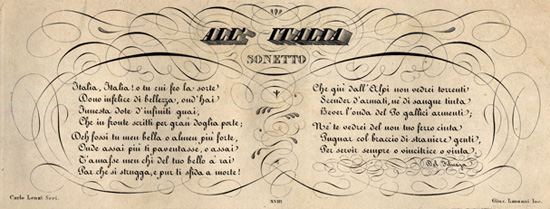 ALL' ITALIA
SONETTO
Italia, Italia! o tu cui feo la sorte
Dono infelice di bellezza, ond' hai
Funesta dote d' infiniti guai,
Che in fronte scritti per gran doglia porte;
Deh fossi tu men bella o almen più forte,
Onde assai più ti paventasse, o assai
T' amasse men chi del tuo bello a' rai
Par che si strugga, e pur ti sfida a morte!
Che giù dall' Alpi non vedrei torrenti
Scender d' armati, nè di sangue tinta
Bever l' onda del Po gallici armenti;
Nè te vedrei del non tuo ferro cinta
Pugnar col braccio di straniere genti,
Per servir sempre o vincitrice o vinta.
Carlo Lenzi Scri.
XVIII
Inc.